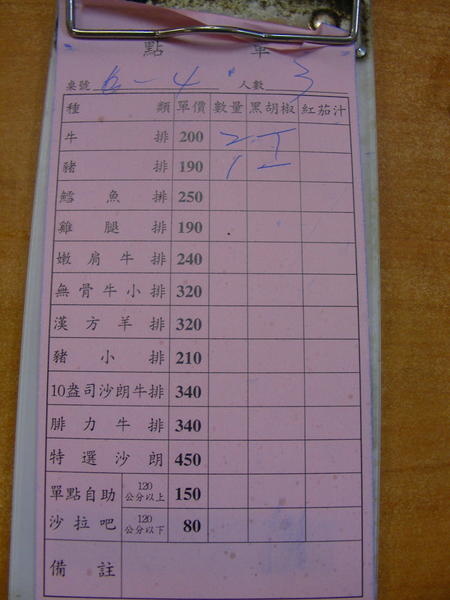 點 單
桌號 6-4 人數 3
種類 單價 數量 黑胡椒 紅茄汁
牛排 200 2 T
豬排 190 1 一
鱈魚排 250
雞腿排 190
嫩肩牛排 240
無骨牛小排 320
漢方羊排 320
豬小排 210
10盎司沙朗牛排 340
腓力牛排 340
特選沙朗 450
單點自助 120公分以上 150
沙拉吧 120公分以下 80
備註